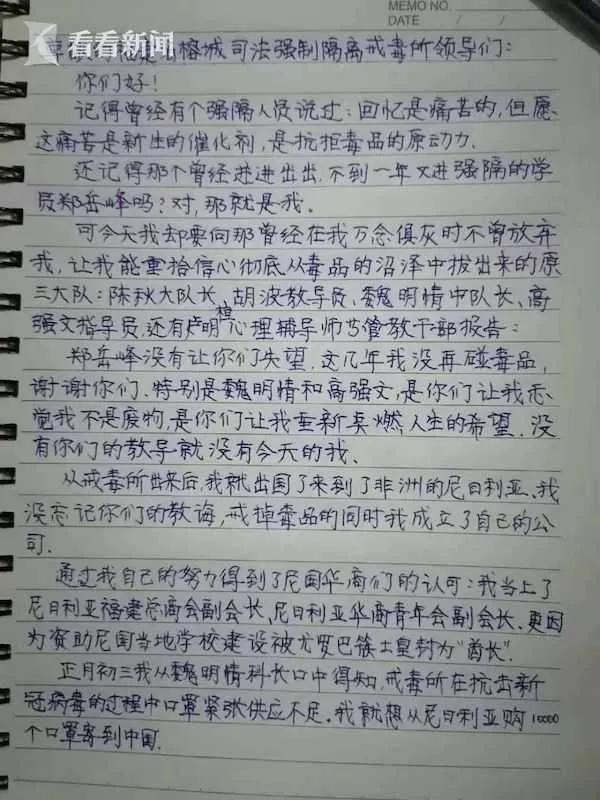 MEMO NO.
DATE / /
看看新闻
榕城司法强制隔离戒毒所领导们:
你们好!
记得曾经有个强隔人员说过:回忆是痛苦的,但愿
这痛苦是新生的催化剂,是抗拒毒品的原动力.
还记得那个曾经进进出出.不到一年又进强隔的学
员郑岳峰吗?对,那就是我.
可今天我却要向那曾经在我万念俱灰时不曾放弃
我,让我能重拾信心彻底从毒品的沼泽中拔出来的原
三大队:陈秋大队长、胡波教导员、魏明情中队长、高
强文指导员.还有卢明桓心理辅导师与管教干部报告:
郑岳峰没有让你们失望.这几年我没再碰毒品,
谢谢你们.特别是魏明情和高强文,是你们让我感
觉我不是废物,是你们让我重新点燃人生的希望.没
有你们的教导就没有今天的我、
从戒毒所出来后,我就出国了来到了非洲的尼日利亚.我
没忘记你们的教诲,戒掉毒品的同时我成立了自己的公
司.
通过我自己的努力得到了尼国华商们的认可:我当上了
尼日利亚福建总商会副会长、尼日利亚华商青年会副会长.更因
为资助尼国当地学校建设被尤罗巴族土皇封为"酋长".
正月初三我从魏明情科长口中得知,戒毒所在抗击新
冠病毒的过程中口罩紧张供应不足.我就想从尼日利亚购10000
个口罩寄到中国.